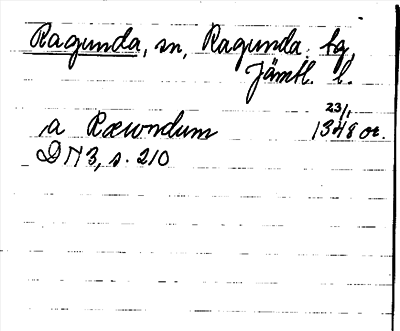 Ragunda, sn, Ragunda tg,
Jämtl. l.
23/1
a Rævndum 1348 or.
DN 3, s. 210